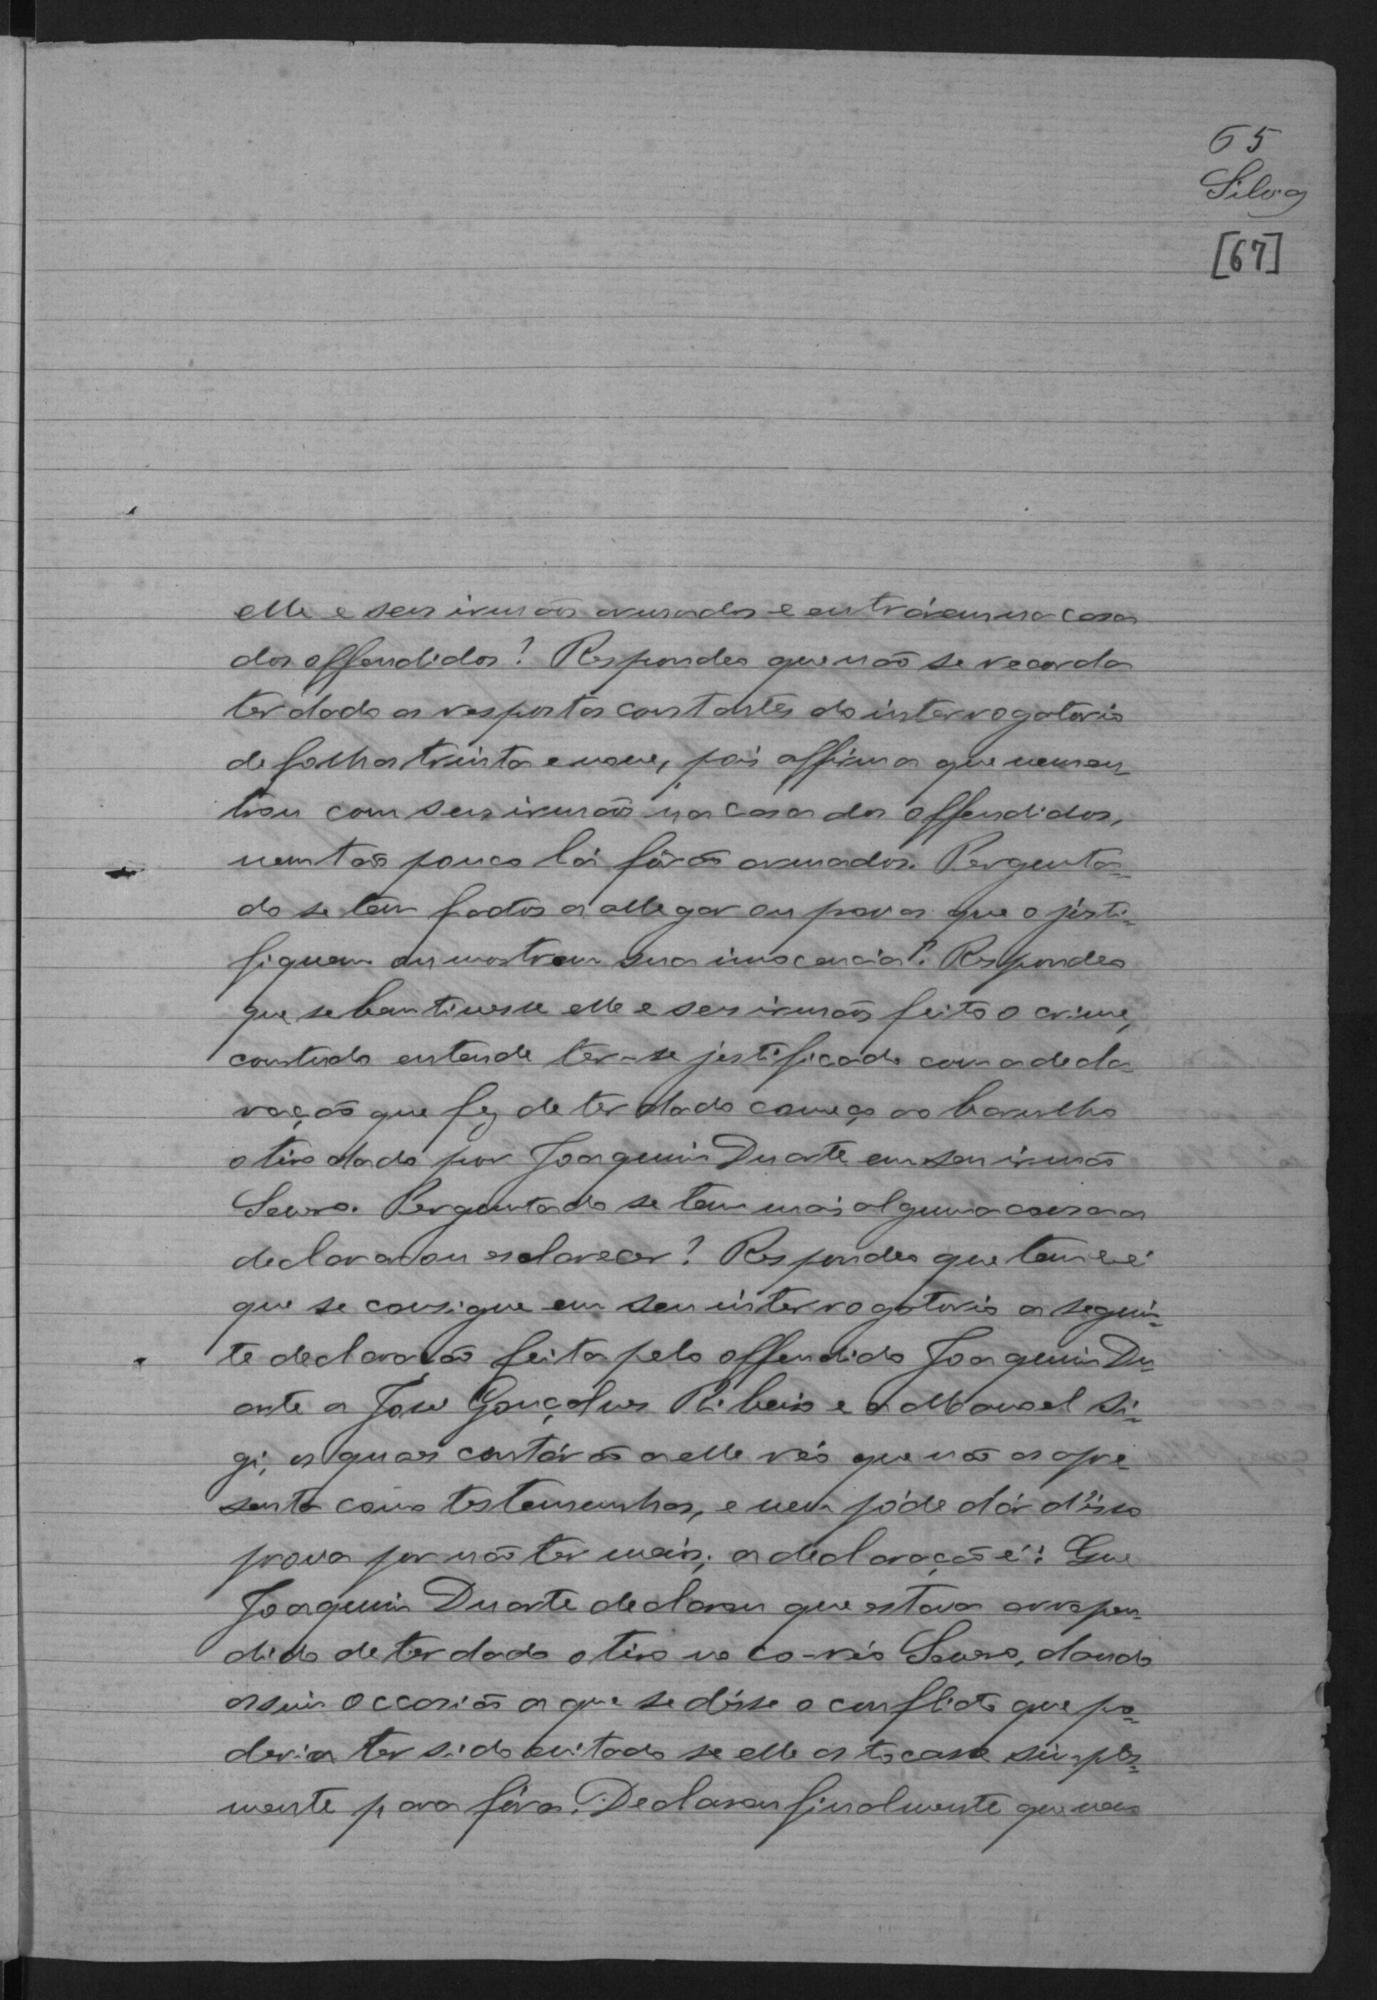 65
Silva
[67]
elle e seu irmão armados e entrárem na casa
dos offendidos? Respondeo que não se recorda
ter dado as respostas constantes do interrogatorio
de folhas trinta e nove, pois affirma que nem en-
trou com seu irmão na casa dos offendidos,
nem tão pouco lá fôrão armados. Pergunta-
do se tem factos a allegar ou provas que o justi-
fiquem ou mostrem sua innocencia? Respondeo
que se bem tivesse elle e seu irmão feito o crime,
comtudo entende ter-se justificado com a decla
ração que fez de ter dado começo ao barulho
o tiro dado por Joaquim Duarte em seu irmão
Lauro. Perguntado se tem mais alguma cousa a
declarar ou esclarecer? Respondeo que tem e é
que se consigne em seu interrogatorio a seguin-
te declaração feita pelo offendido Joaquim Du-
arte a José Gonçalves Ribeiro e a Manoel Si-
gi, os quaes contárão a elle réo que não os apre
senta como testemunhas, e nem póde dár d'isso
prova por não ter meios; a declaração é: Que
Joaquim Duarte declarou que estava arrepen-
dido de ter dado o tiro no co-réo Lauro, dando
assim occasião a que se désse o conflicto que po-
deria ter sido evitado se elle os tocasse simples-
mente para fóra. Declarou finalmente que nem